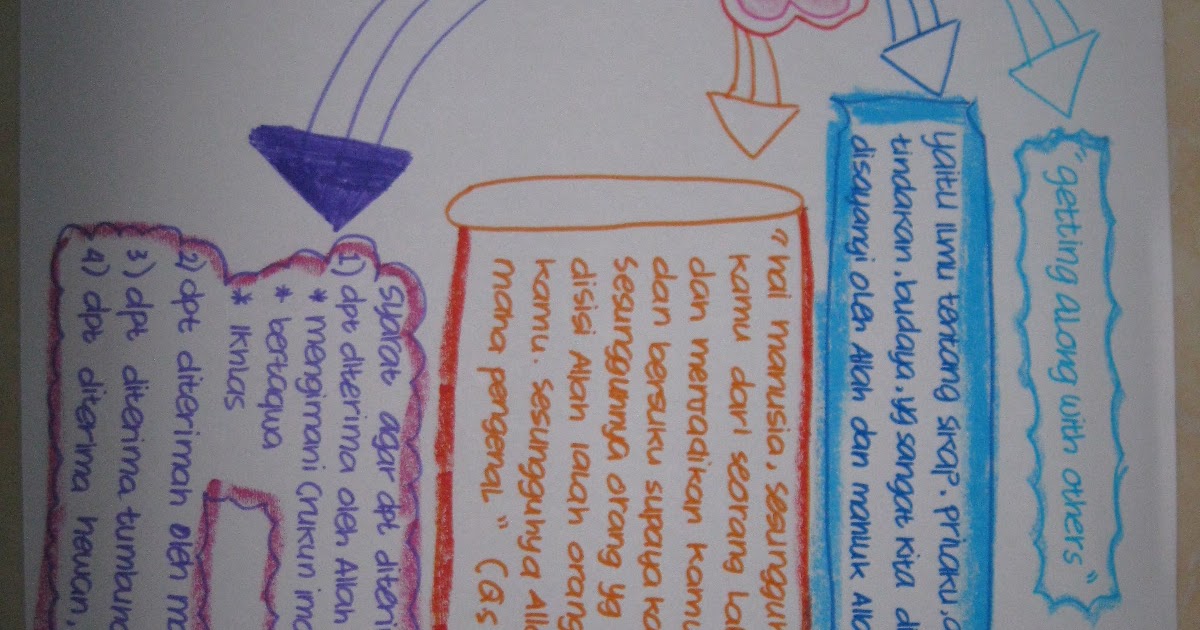 "getting along with others"
yaitu ilmu tentang sikap. prilaku,
tindakan, budaya, yg sangat kita
disayangi oleh Allah dan mahluk
"hai manusia, sesunggu
kamu dari seorang la
dan menjadikan kamu
dan bersuku supaya ka
Sesungguhnya orang yg
disisi Allah ialah orang
kamu. sesungguhnya All
maha pengenal" (Qs
Syarat agar dpt diteri
1) dpt diterima oleh Allah
* mengimani (rukun ima
* bertaqwa
* Ikhlas
2) dpt diterimah oleh ma
3) dpt diterima tumbuha
4) dpt diterima hewan,